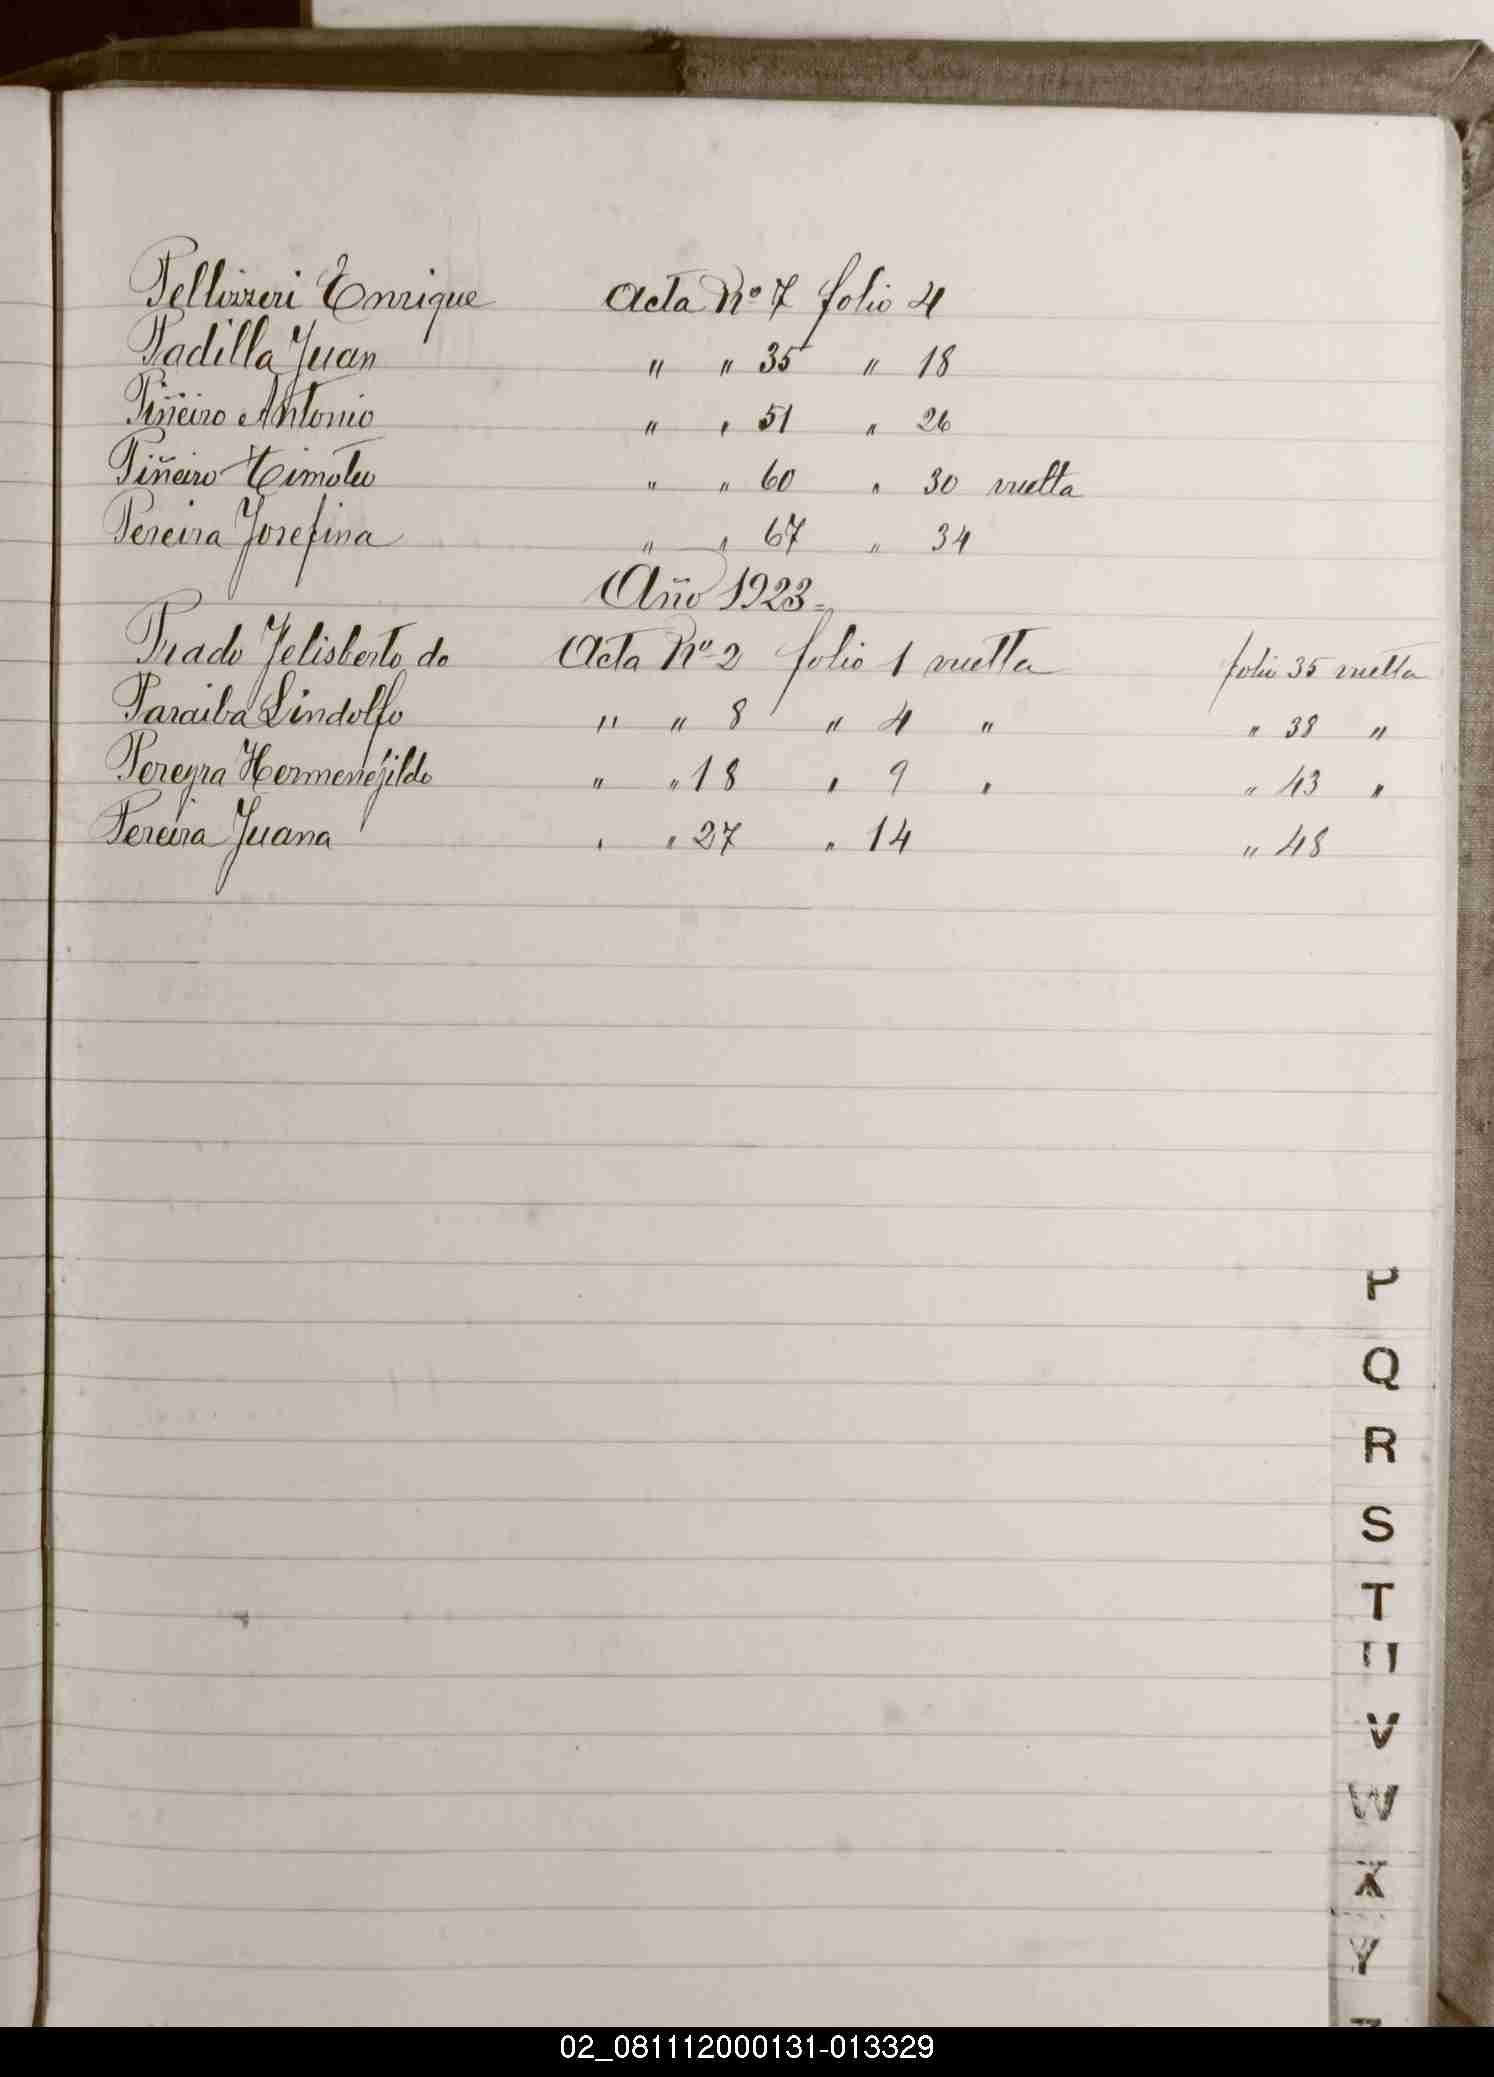 Pellizzeri Enrique Acta Nº 7 folio 4
Padilla Juan " " 35 " 18
Piñeiro Antonio " " 51 " 26
Piñeiro Timoteo " " 60 " 30 vuelta
Pereira Josefina " " 67 " 34
Año 1923=
Prado Felisberto do Acta Nº 2 folio 1 vuelta folio 35 vuelta
Paraiba Lindolfo " " 8 " 4 " " 38 "
Pereyra Hermenejildo " " 18 " 9 " " 43 "
Pereira Juana " " 27 " 14 " 48
P
Q
R
S
T
U
V
W
X
Y
02_081112000131-013329